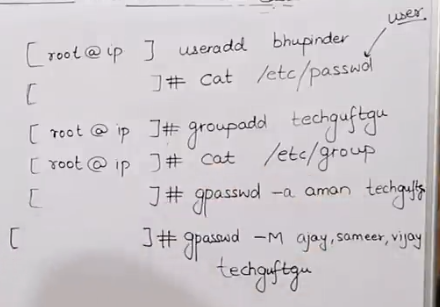 user
[ root @ ip ] useradd bhupinder
[ ]# cat /etc/passwd
[ root @ ip ]# groupadd techguftgu
[ root @ ip ]# cat /etc/group
[ ]# gpasswd -a aman techguftgu
[ ]# gpasswd -M ajay, sameer, vijay
techguftgu